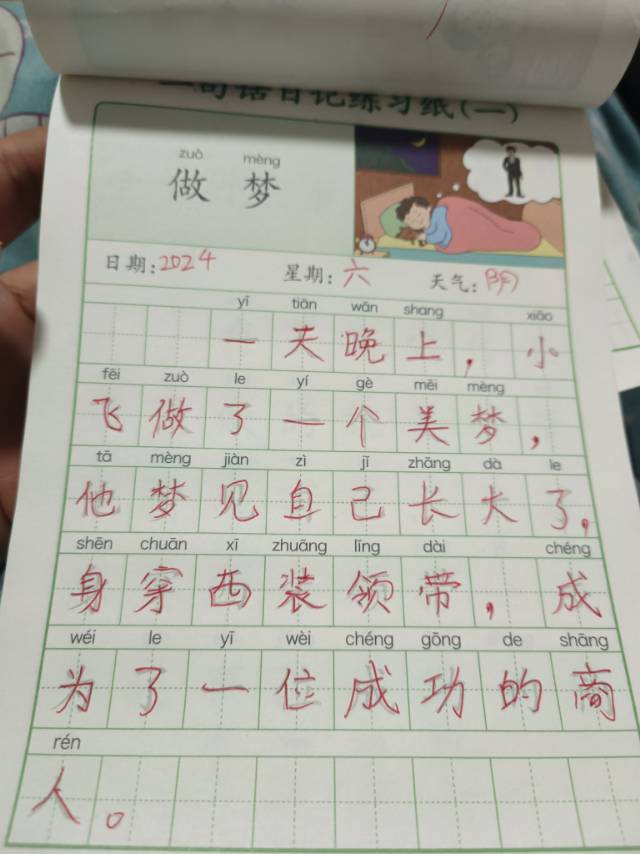 一句话日记练习纸(一)
zuò mèng
做 梦
日期:2024 星期:六 天气:阴
yī tiān wǎn shang xiǎo
一天晚上,小
fēi zuò le yí gè měi mèng
飞做了一个美梦,
tā mèng jiàn zì jǐ zhǎng dà le
他梦见自己长大了,
shēn chuān xī zhuāng lǐng dài chéng
身穿西装领带,成
wéi le yī wèi chéng gōng de shāng
为了一位成功的商
rén
人。